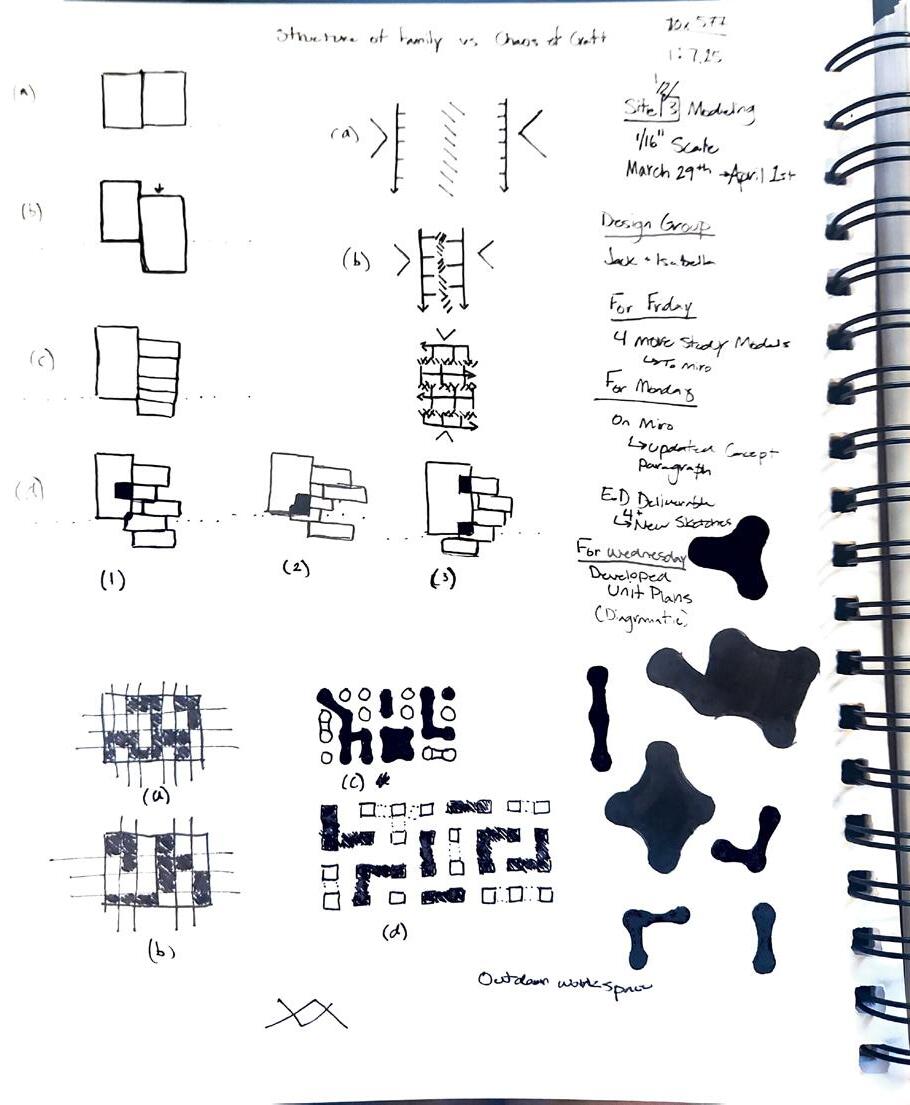 Structure of Family vs Chaos of Craft
1:7.25
1/2/
Site 3 Modeling
1/16" Scale
March 29th →April 1st
Design Group
Jack + Isabella
For Friday
4 more Study Models
↳To Miro
For Monday
On Miro
↳updated Concept
Paragraph
E.D Deliverable
↳4+ New Sketches
For Wednesday
Developed
Unit Plans
(Diagrmatic)
(a)
(b)
(c)
(d)
(1)
(2)
(3)
(a)
(b)
(a)
(b)
(c) *
(d)
Outdoor workspace